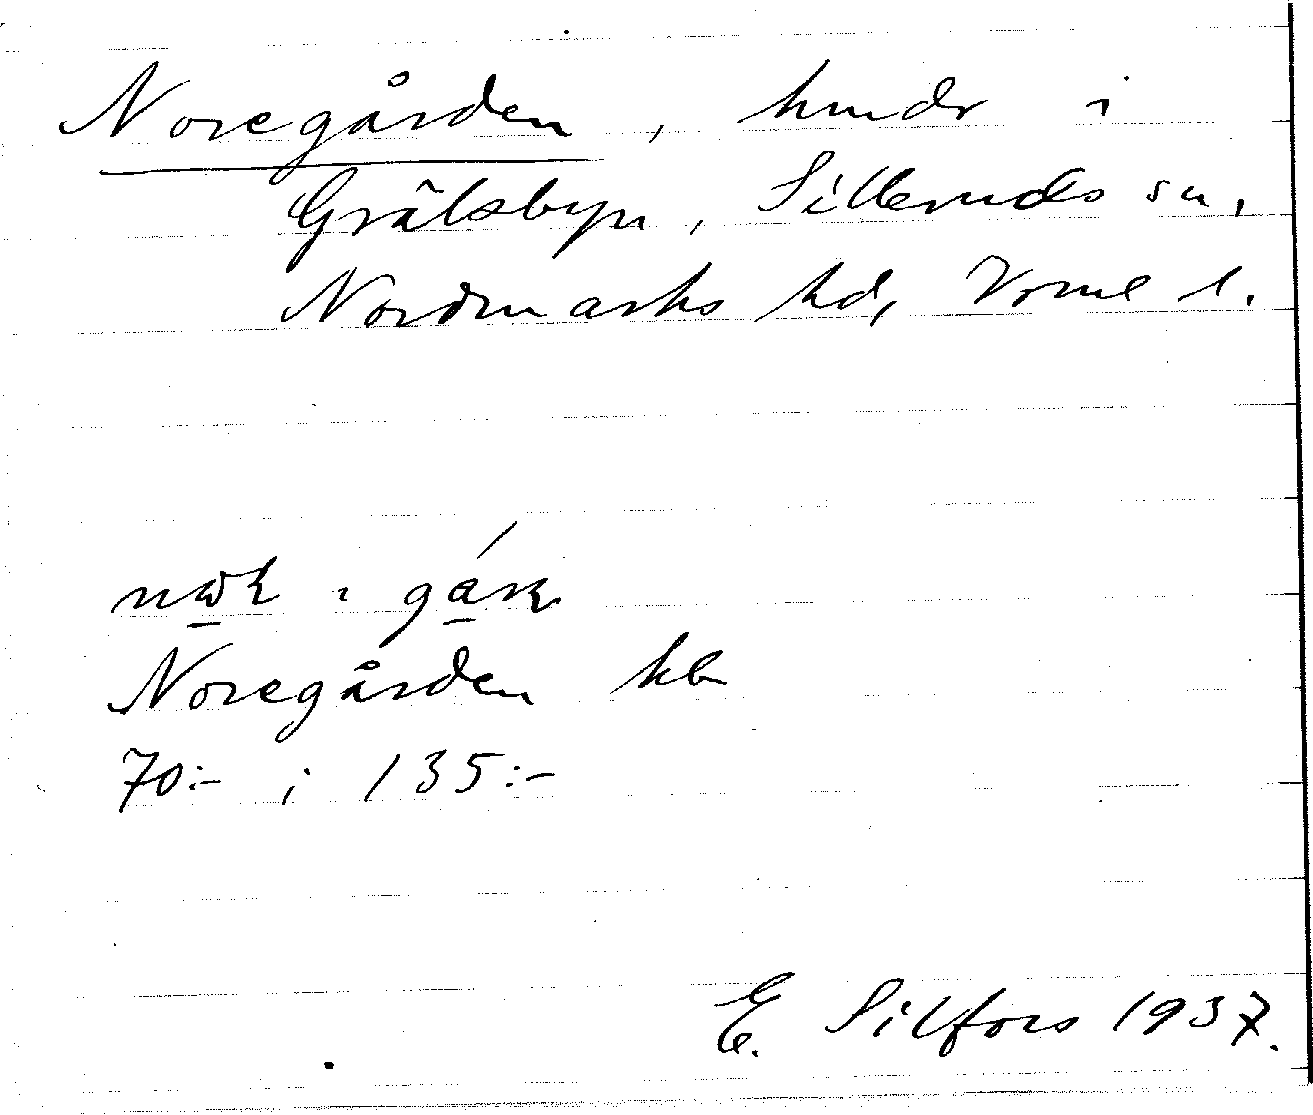 Noregården, hmdr i
Grälsbyn, Silleruds sn,
Nordmarks hd, Vrml l.
Noregården
70:- i 135:-
E. Silfors 1937.